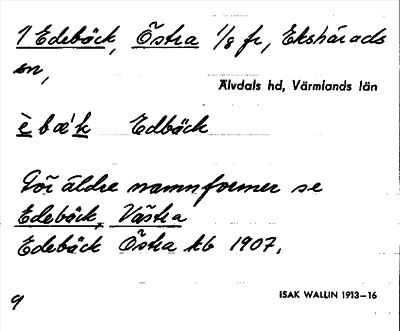 1 Edebäck, Östra 1/8 fr, Ekshärads
sn,
Älvdals hd, Värmlands län
è bæ' k Edbäck
För äldre namnformer se
Edebäck, Västra
Edebäck Östra kb 1907.
9
ISAK WALLIN 1913–16